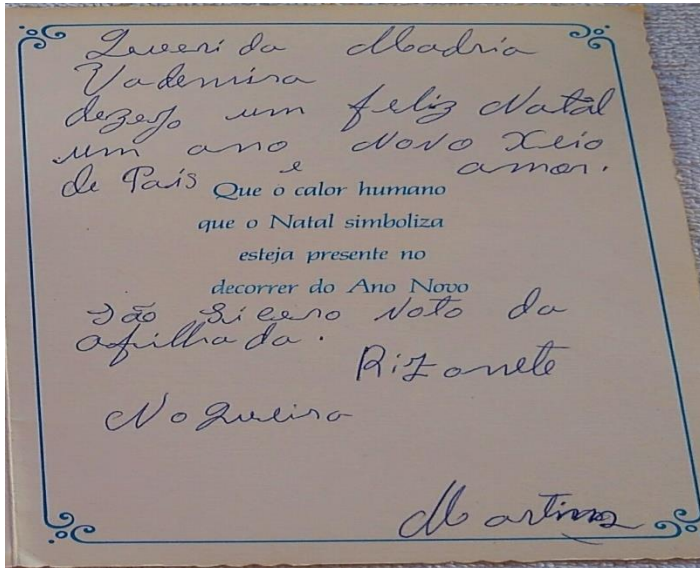 Queerida Madria
Vademira
dezejo um feliz Natal
um ano Novo Xeio
de Pais e amor.
Que o calor humano
que o Natal simboliza
esteja presente no
decorrer do Ano Novo
São Sicero Voto da
afilhada.
Rizonete
Nogueira
Martins